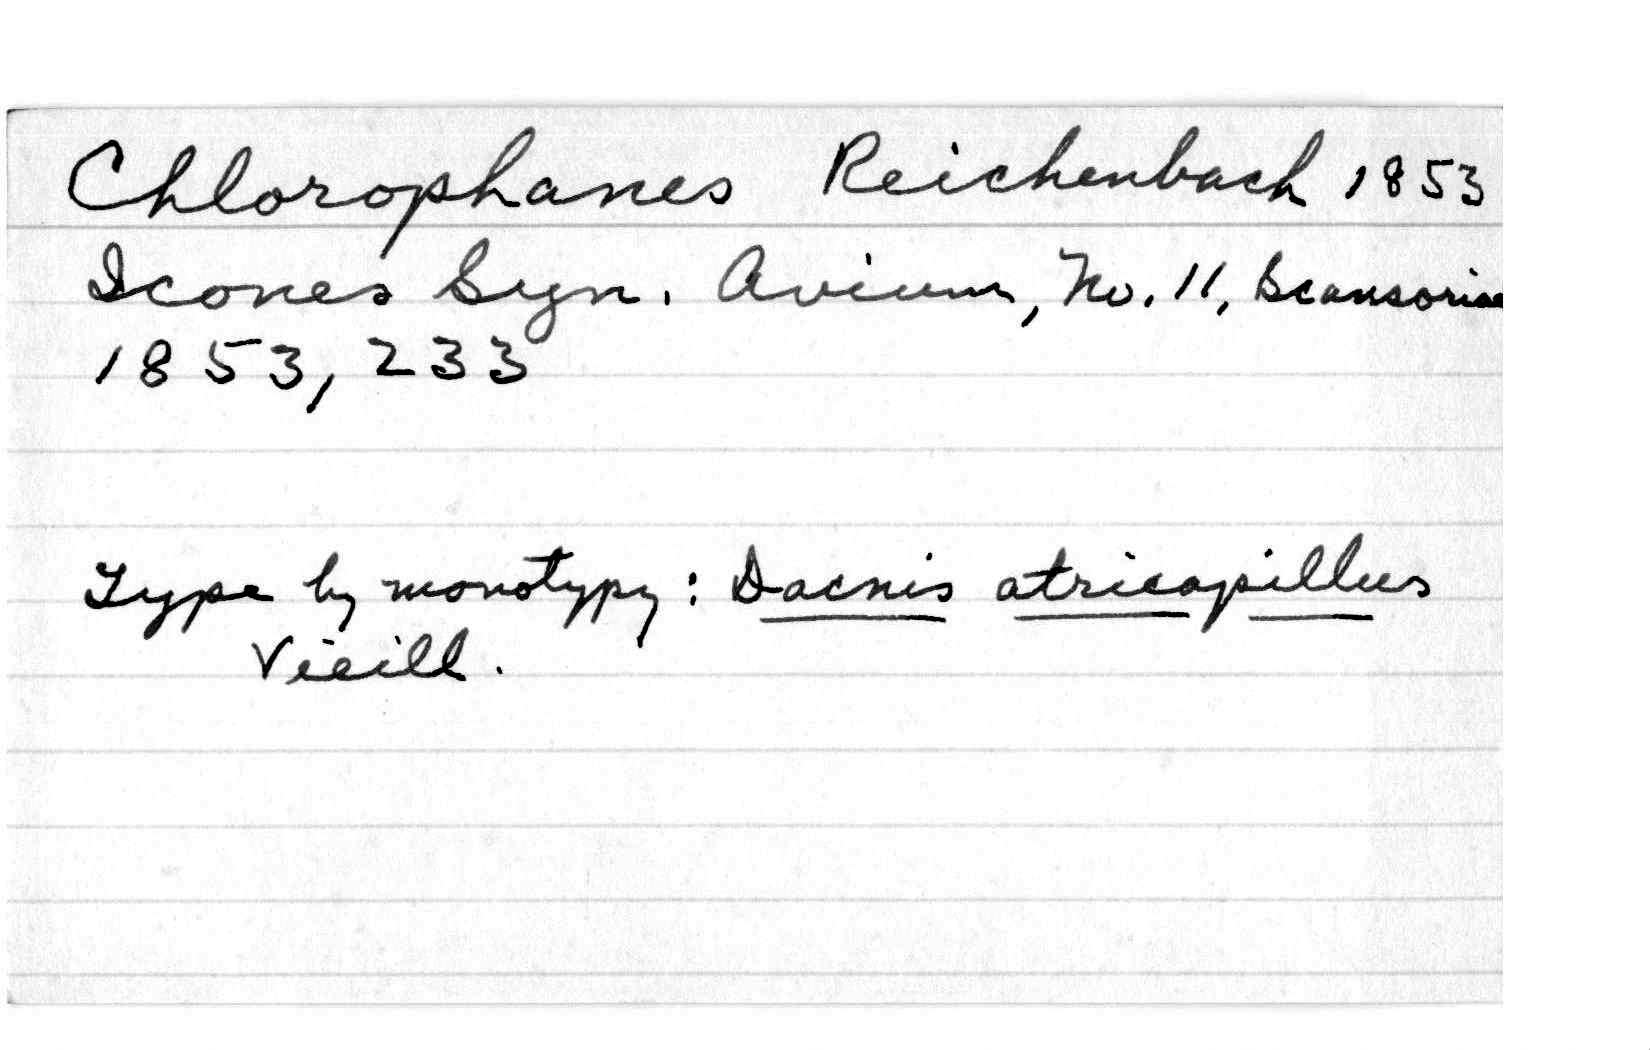 Chlorophanes Reichenbach 1853
Icones Syn. Avium, No. 11, Scansoriae
1853, 233
Type by monotypy: Dacnis atricapillus
Vieill.